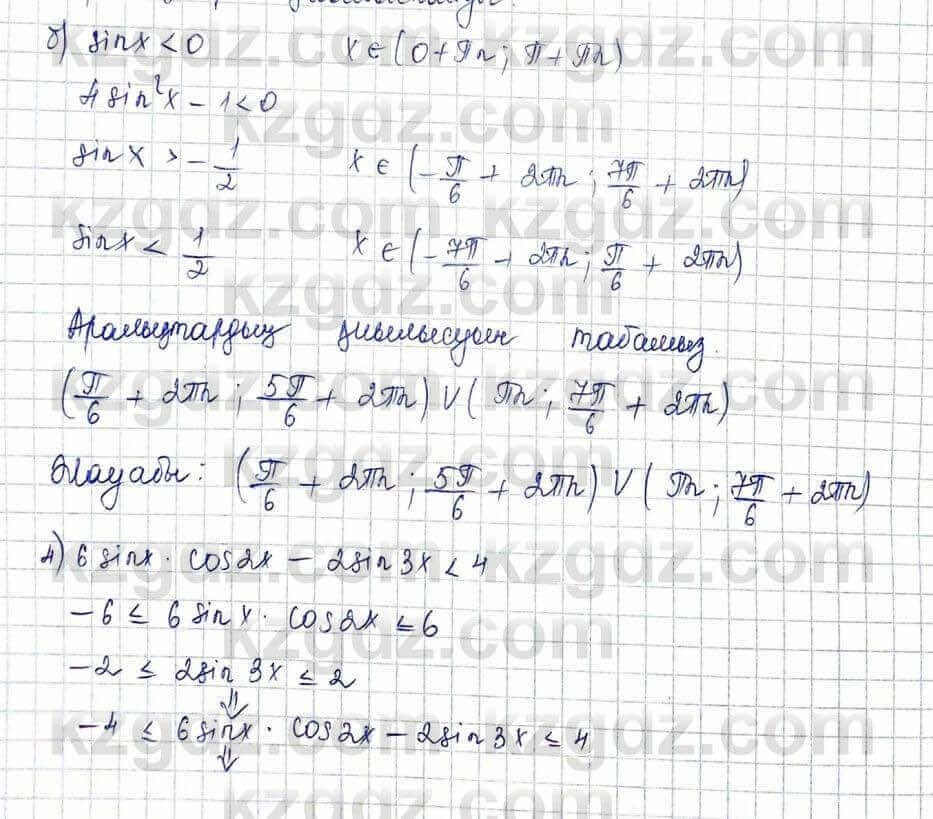 б) sinx < 0 x ∈ (0 + πn; π + πn)
4 sin²x - 1 < 0
sinx > -1/2 x ∈ (-π/6 + 2πn; 7π/6 + 2πn)
sinx < 1/2 x ∈ (-7π/6 + 2πn; π/6 + 2πn)
Аралықтардың қиылысуын табамыз.
(π/6 + 2πn; 5π/6 + 2πn) ∨ (πn; 7π/6 + 2πn)
Жауабы: (π/6 + 2πn; 5π/6 + 2πn) ∨ (πn; 7π/6 + 2πn)
4) 6 sinx · cos2x - 2sin3x < 4
-6 ≤ 6 sinx · cos2x ≤ 6
-2 ≤ 2sin3x ≤ 2
⇓
-4 ≤ 6sinx · cos2x - 2sin3x ≤ 4
⇓
kzgdz.com